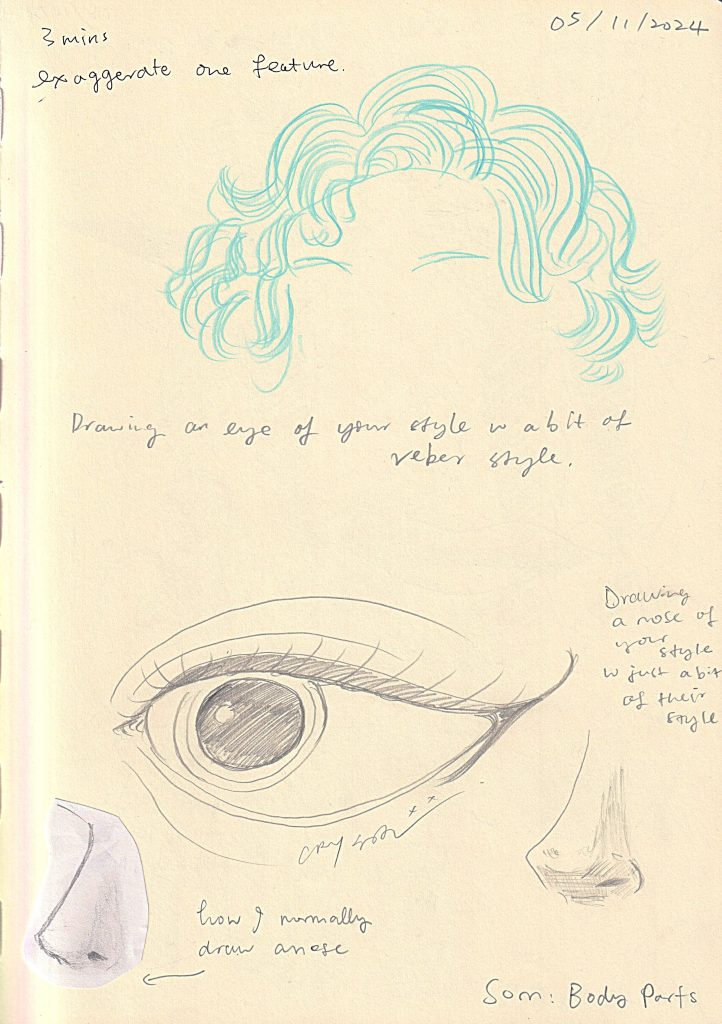 05/11/2024
3 mins
exaggerate one feature.
Drawing an eye of your style w a bit of
veber style.
Drawing
a nose of
your
style
w just a bit
of their
style
how I normally
draw a nose
Som: Body Parts